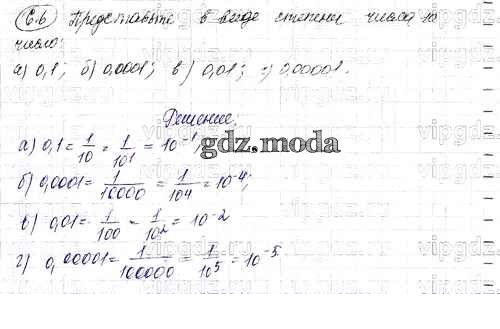 6.6 Представьте в виде степени числа 10
число:
а) 0,1; б) 0,0001; в) 0,01; г) 0,00001.
Решение.
а) 0,1 = 1/10 = 1/10^1 = 10^-1;
gdz.moda
б) 0,0001 = 1/10000 = 1/10^4 = 10^-4;
в) 0,01 = 1/100 = 1/10^2 = 10^-2
г) 0,00001 = 1/100000 = 1/10^5 = 10^-5